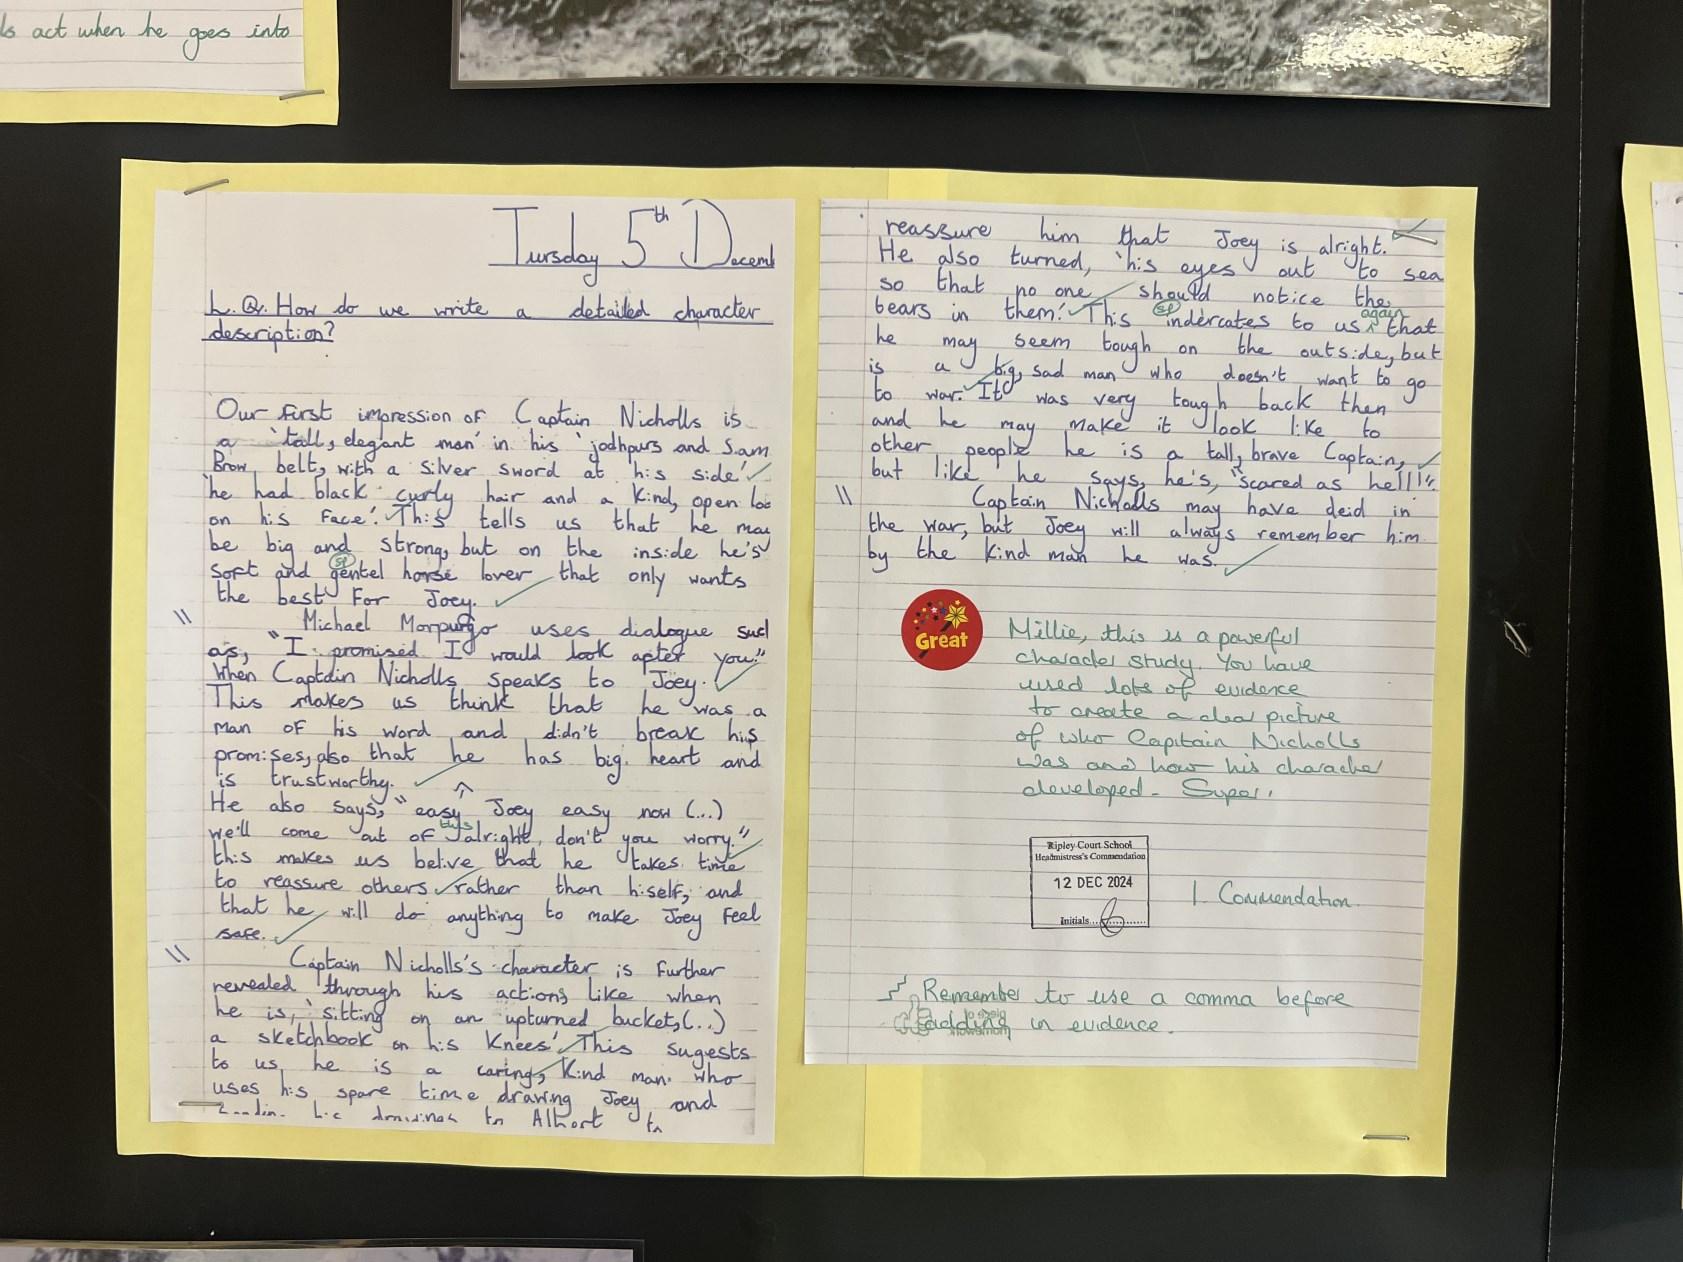 ls act when he goes into
Tursday 5th Decemb
L.Q. How do we write a detailed character
description?
Our first impression of Captain Nicholls is
a 'tall, elegant man' in his 'jodhpurs and Sam
Brow belt, with a silver sword at his side'
'he had black curly hair and a kind, open loo
on his face'. This tells us that he may
be big and strong, but on the inside he's
sp
soft and gentel horse lover that only wants
the best for Joey.
// Michael Morpurgo uses dialogue such
as, "I promised I would look after you."
When Captain Nicholls speaks to Joey.
This makes us think that he was a
man of his word and didn't break his
promises, also that he has big heart and
is trustworthy.
He also says, "easy Joey easy now (...)
we'll come out of this alright, don't you worry."
this makes us belive that he takes time
to reassure others rather than hiself, and
that he will do anything to make Joey feel
safe.
// Captain Nicholls's character is further
revealed through his actions like when
he is, 'sitting on an upturned bucket, (...)
a sketchbook on his knees'. This sugests
to us he is a caring, kind man who
uses his spare time drawing Joey and
his drawings to Albort to
reassure him that Joey is alright.
He also turned, 'his eyes out to sea
so that no one should notice the
bears in them.' This sp indercates to us again that
he may seem tough on the outside, but
is a big, sad man who doesn't want to go
to war. It was very tough back then
and he may make it look like to
other people he is a tall, brave Captain,
but like he says, he's, "scared as hell!".
// Captain Nicholls may have deid in
the war, but Joey will always remember him
by the kind man he was.
Great
Millie, this is a powerful
character study. You have
used lots of evidence
to create a clear picture
of who Captain Nicholls
was and how his character
developed. Super!
Ripley Court School
Headmistress's Commendation
12 DEC 2024
Initials
1 Commendation.
Remember to use a comma before
adding in evidence.